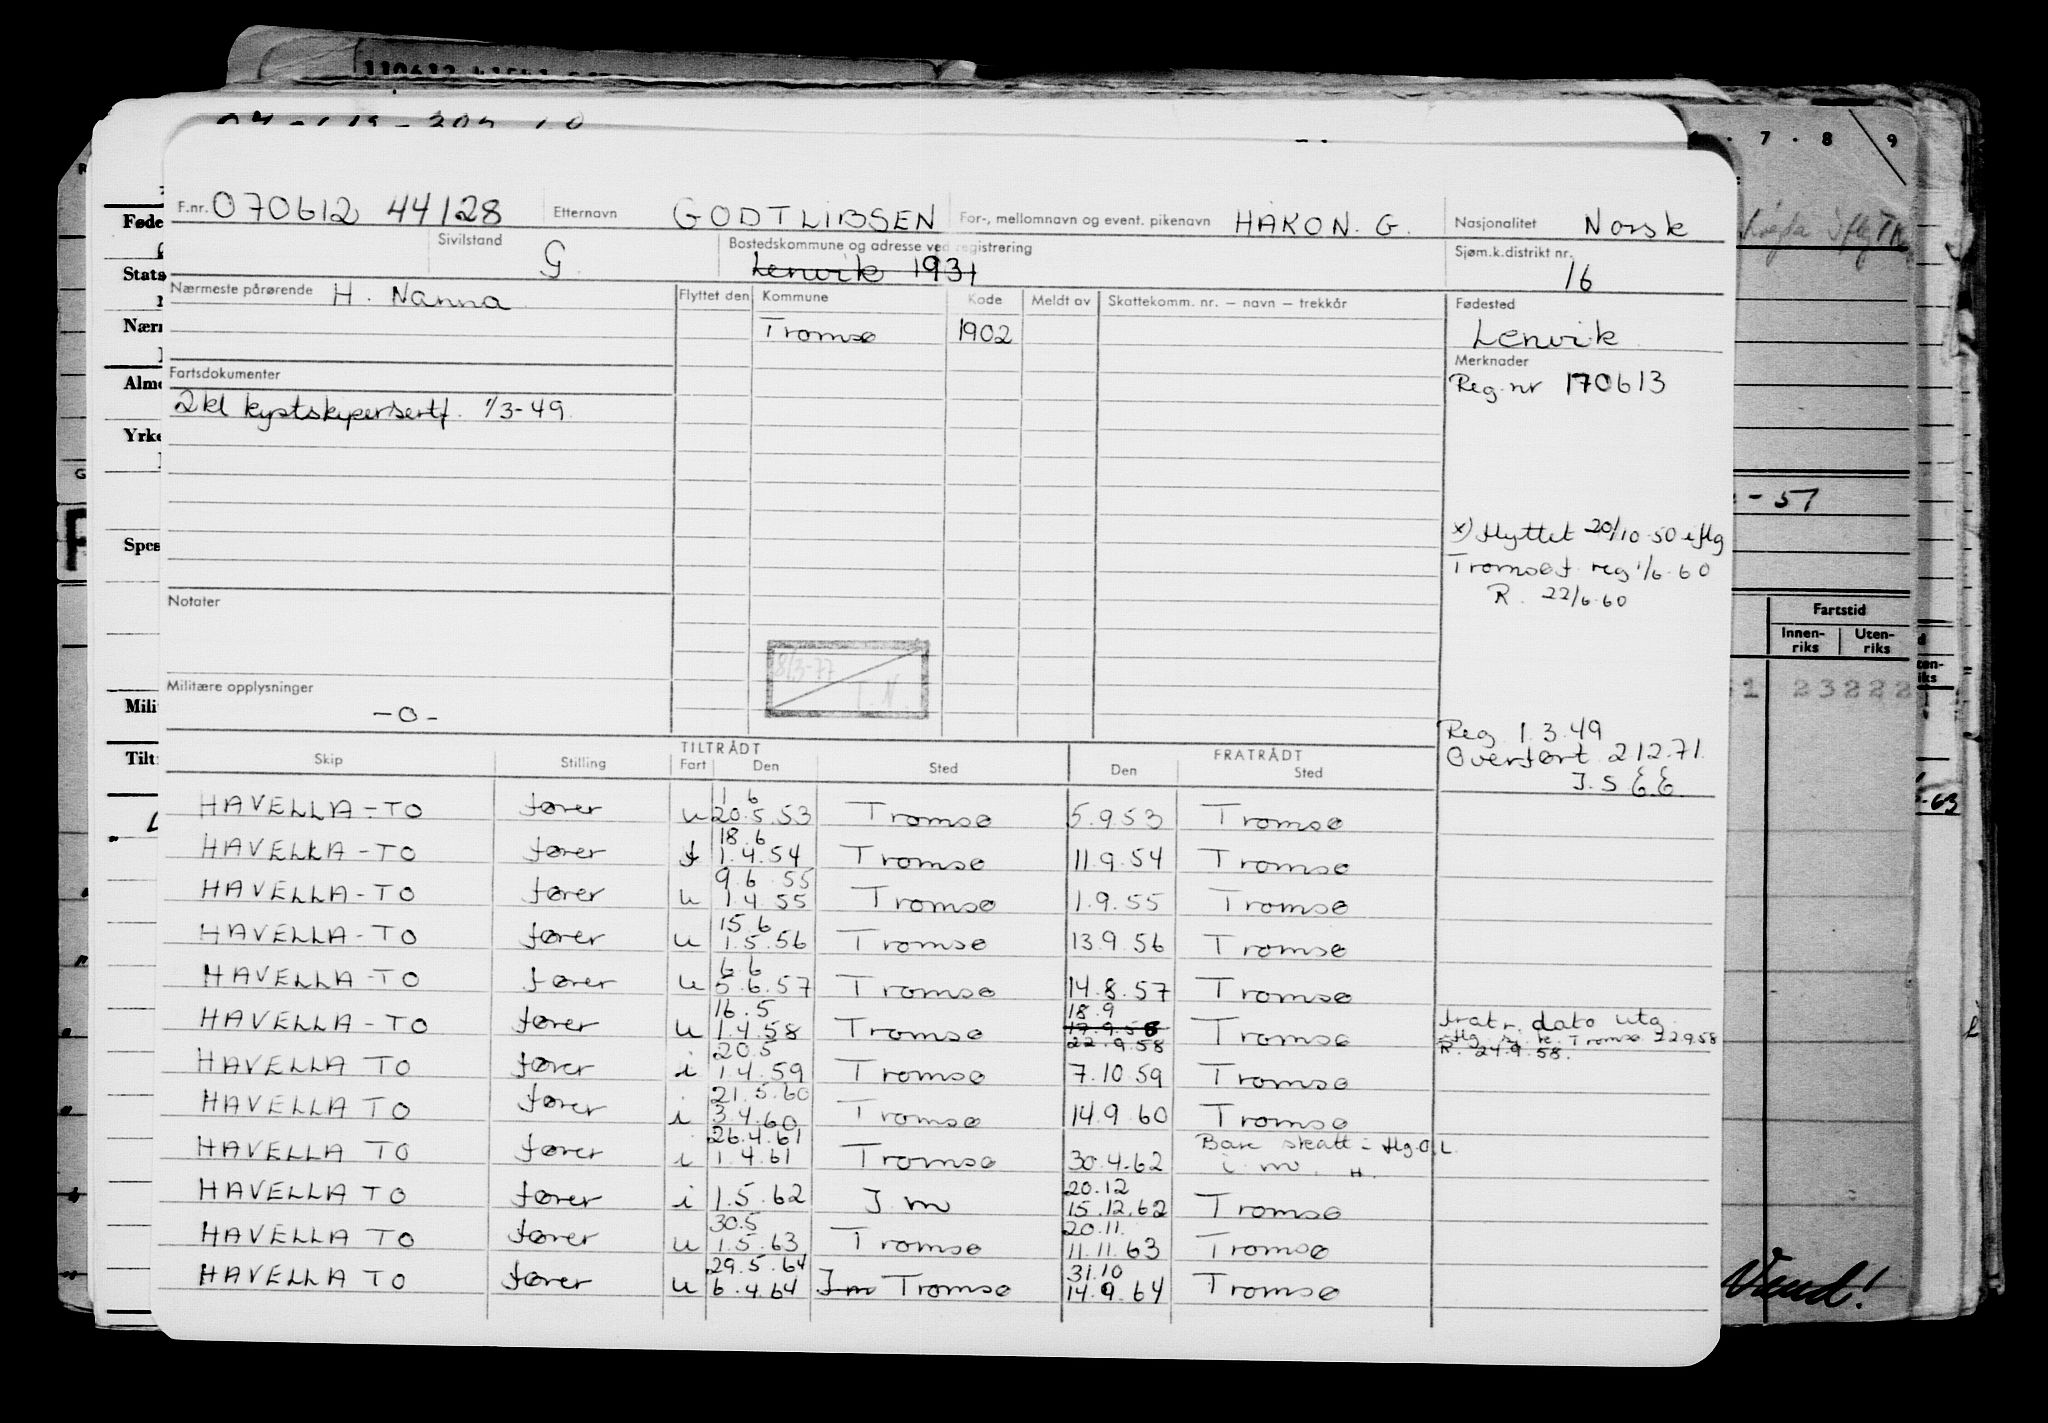 7 · 8 9
F.nr. 070612 44128 Etternavn GODTLIBSEN For-, mellomnavn og event. pikenavn HÅKON. G. Nasjonalitet Norsk
Sivilstand G Bostedskommune og adresse ved registrering Lenvik 1931 Sjøm.k.distrikt nr. 16
Nærmeste pårørende H. Nanna Flyttet den Kommune Kode Meldt av Skattekomm. nr. – navn – trekkår Fødested
Tromsø 1902 Lenvik
Merknader
Reg.nr 170613
Fartsdokumenter
2kl kystskippersertf. 1/3-49
- 57
x) flyttet 20/10-50 iflg
Tromsø f. reg 1/6-60
R. 22/6-60
Notater
8/3-77
T.N.
Militære opplysninger
-0-
Reg 1.3.49
Overført 2.12.71
J.S E.E.
TILTRÅDT FRATRÅDT
Skip Stilling Fart Den Sted Den Sted
1 6
HAVELLA-TO fører u 20.5.53 Tromsø 5.9.53 Tromsø
18.6
HAVELLA-TO fører f 1.4.54 Tromsø 11.9.54 Tromsø
9.6 55
HAVELLA-TO fører u 1.4 55 Tromsø 1.9.55 Tromsø
15.6
HAVELLA-TO fører u 1.5.56 Tromsø 13.9.56 Tromsø
6.6
HAVELLA-TO fører u 5.6.57 Tromsø 14.8.57 Tromsø
16.5 18.9
HAVELLA-TO fører u 1.4.58 Tromsø 17.9.58 Tromsø fratr. dato utg
22.9.58 iflg. Tromsø 22.9.58
R. 24.9.58.
20.5
HAVELLA TO fører i 1.4.59 Tromsø 7.10 59 Tromsø
21.5.60
HAVELLA TO fører i 3.4.60 Tromsø 14.9.60 Tromsø
26.4.61 Bare skatt - flg. O.L.
HAVELLA TO fører i 1.4.61 Tromsø 30.4.62 i. m. H.
20.12
HAVELLA TO fører i 1.5.62 J m 15.12.62 Tromsø
30.5 20.11.
HAVELLA TO fører u 1.5.63 Tromsø 11.11.63 Tromsø
29.5.64 31.10
HAVELLA TO fører u 6.4.64 J m Tromsø 14.9.64 Tromsø
Føde
Stats
Nærn
Alme
Yrke
Spes
Mili
Tilt
Fartstid
Innen-
riks
Uten-
riks
23222
-63
Vend!